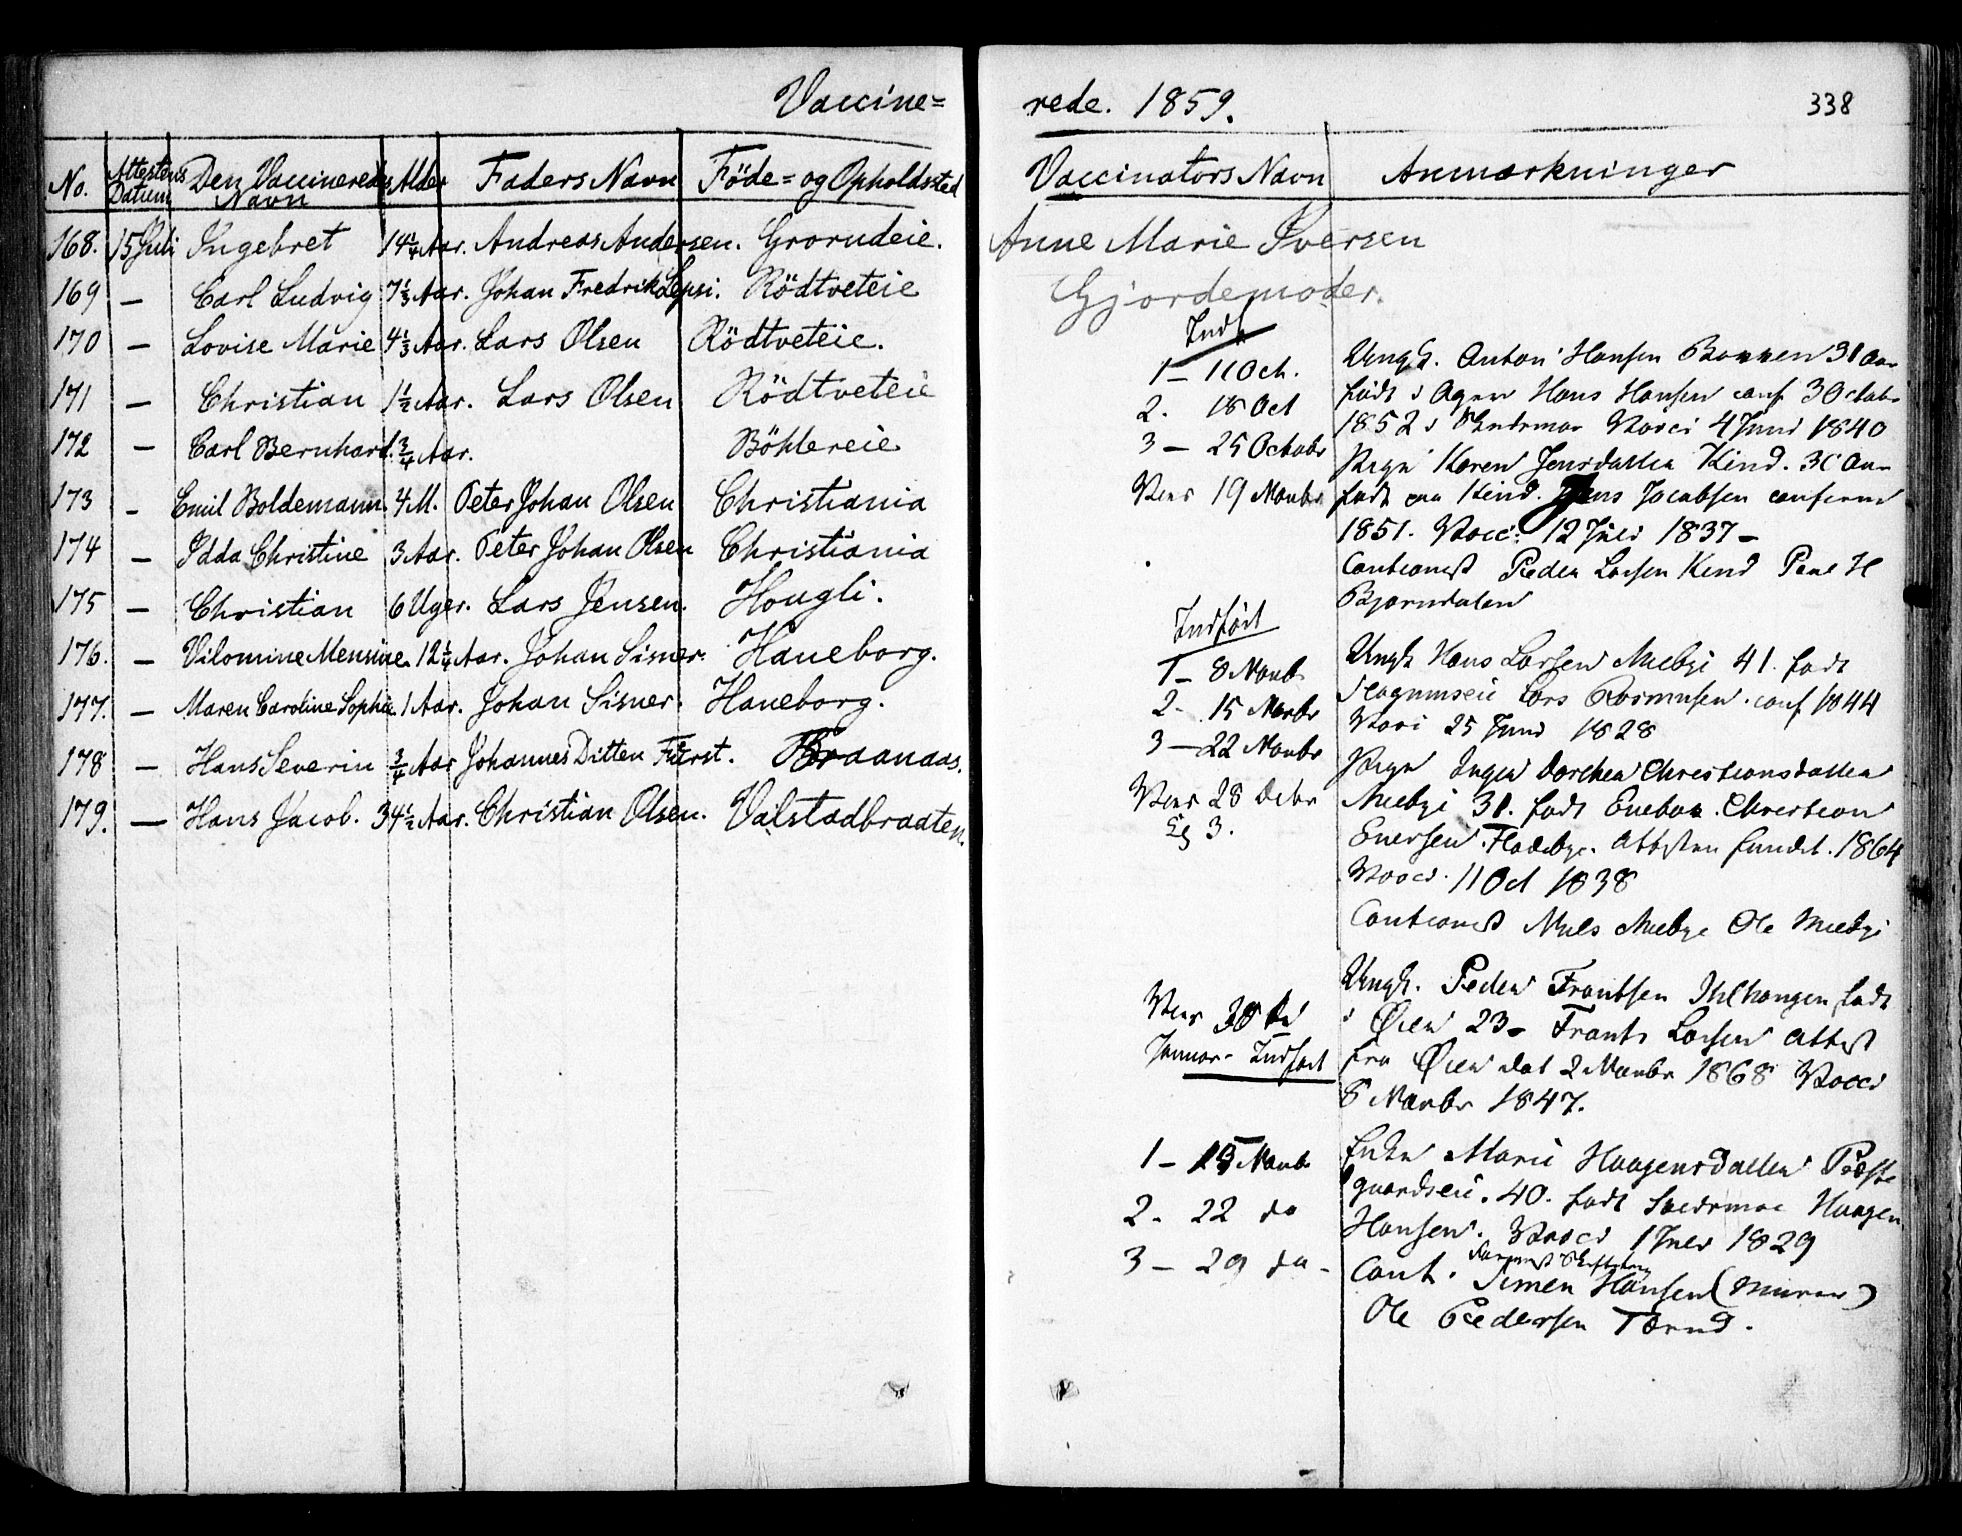 Vaccine=
No. Attestens Datum Den Vaccineredes Navn Alder Faders Navn Föde= og Opholdssted
168. 15 Juli Ingebret 14 1/4 Aar. Andreas Andersen. Grorudeie.
169 — Carl Ludvig 7 1/3 Aar. Johan Fredrik Rödtveteie
170 — Lovise Marie 4 1/3 Aar. Lars Olsen Rödtveteie.
171 — Christian 1 1/2 Aar. Lars Olsen Rödtveteie
172 — Carl Bernhard 1 3/4 Aar. Böhlereie
173 — Emil Boldemann. 4 M. Peter Johan Olsen Christiania
174 — Idda Christine 3 Aar. Peter Johan Olsen Christiania
175 — Christian 6 Uger. Lars Jensen. Hougli.
176. — Vilomine Mensine 12 1/4 Aar. Johan Sisner. Haneborg.
177. — Maren Caroline Sophie 1 Aar. Johan Sisner. Haneborg.
178 — Hans Severin 3/4 Aar Johannes Ditten Fürst. Braanaas.
179. — Hans Jacob. 34 1/2 Aar. Christian Olsen. Valstadbraaten.
rede. 1859. 338
Vaccinators Navn Anmærkninger
Anne Marie Iversen
Gjordemoder.
Indf
1 — 11 Oct.
2. 18 Oct
3 — 25 Octobr
Vies 19 Novbr
Ungk. Anton Hansen 31 Aar
født i Hans Hansen conf 3 Octobr
1852 i Vacci 4 Juni 1840
Pige Karen Jensdatter Kind. 30 Aar
født paa Kind. Jens Jacobsen confirm
1851. Vacc: 12 Juli 1837 —
Cautionist Peder Larsen Kind Paul H
Bjørndalen
Indført
1 — 8 Novb
2. 15 Novbr
3 — 22 Novbr
Vies 28 Decbr
Lg 3.
Ungk Hans Larsen Mieby 41. født
Lars Rasmusen. conf 1844
Vacci 25 Juni 1828
Pige Inger Dorthea Christiansdatter
Mieby 31. født Enebak. Christian
Evensen Fladeby. Attesten fundet. 1864
Vacci. 11 Oct 1838
Cautionist Niels Mieby Ole Mieby
Vies 30 de
Januar — Indført
Ungk. Peder Frantsen født
i Øien 23 — Frants Larsen Attest
fra Øien dat 2 Novbr 1868 Vacci
8 Novbr 1847.
1 — 15 Novb
2. 22 do
3 — 29 do —
Enke Marie Haagensdatter Præste
gaardseie. 40. født Haagen
Hansen. Vacci 1 Juli 1829
Caut. Simen Hansen (Murer)
Ole Pedersen Tærud.